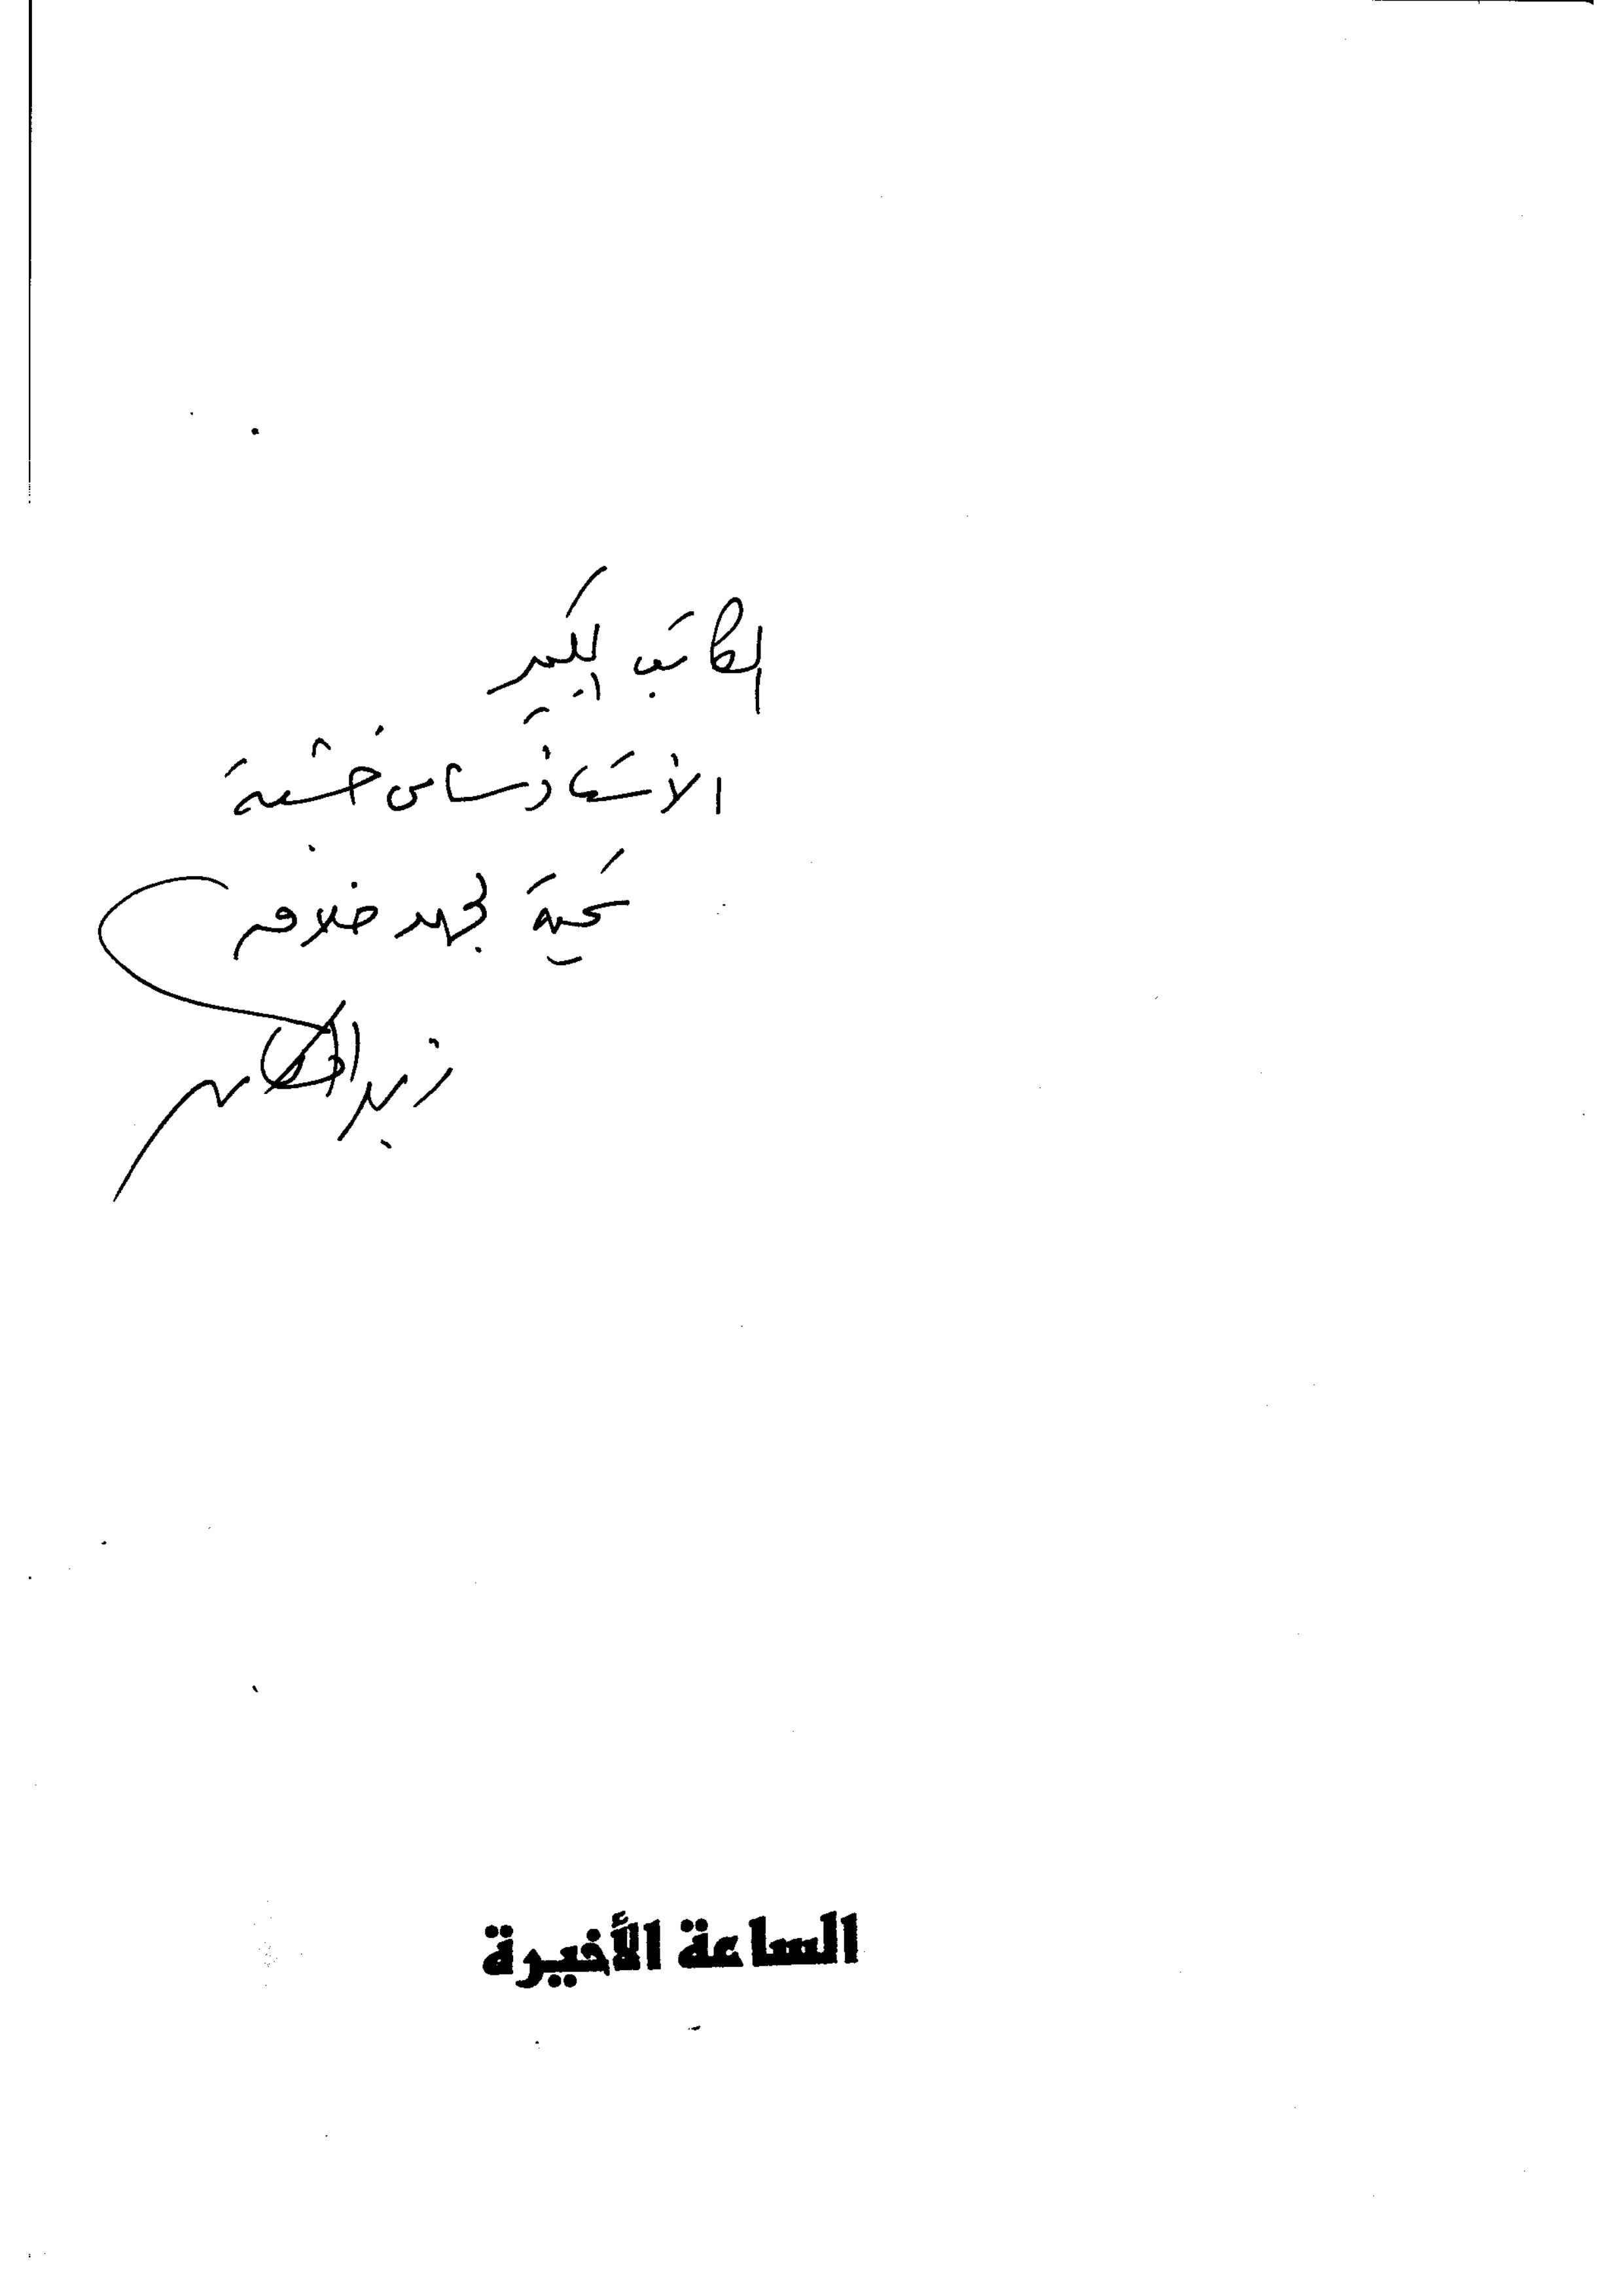 الكاتب الكبير
الأستاذ سامى خشبة
تحية لجهد خلاق
الساعة الأخيرة